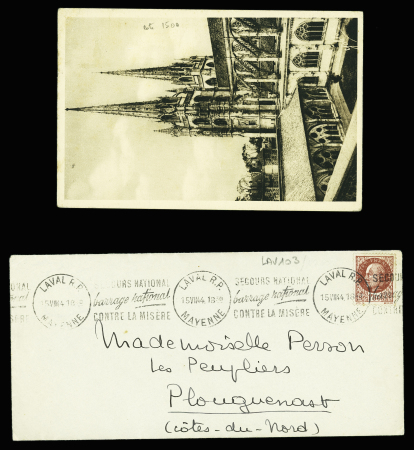 cote 1500
LAV103
LAVAL R.P.
MAYENNE
SECOURS NATIONAL
barrage national
CONTRE LA MISÈRE
LAVAL R.P.
MAYENNE
SECOURS NATIONAL
barrage national
CONTRE LA MISÈRE
LAVAL R.P.
MAYENNE
SECOU
CONTRE
Mademoiselle Person
Les Peupliers
Plouguenast
(Côtes-du-Nord)